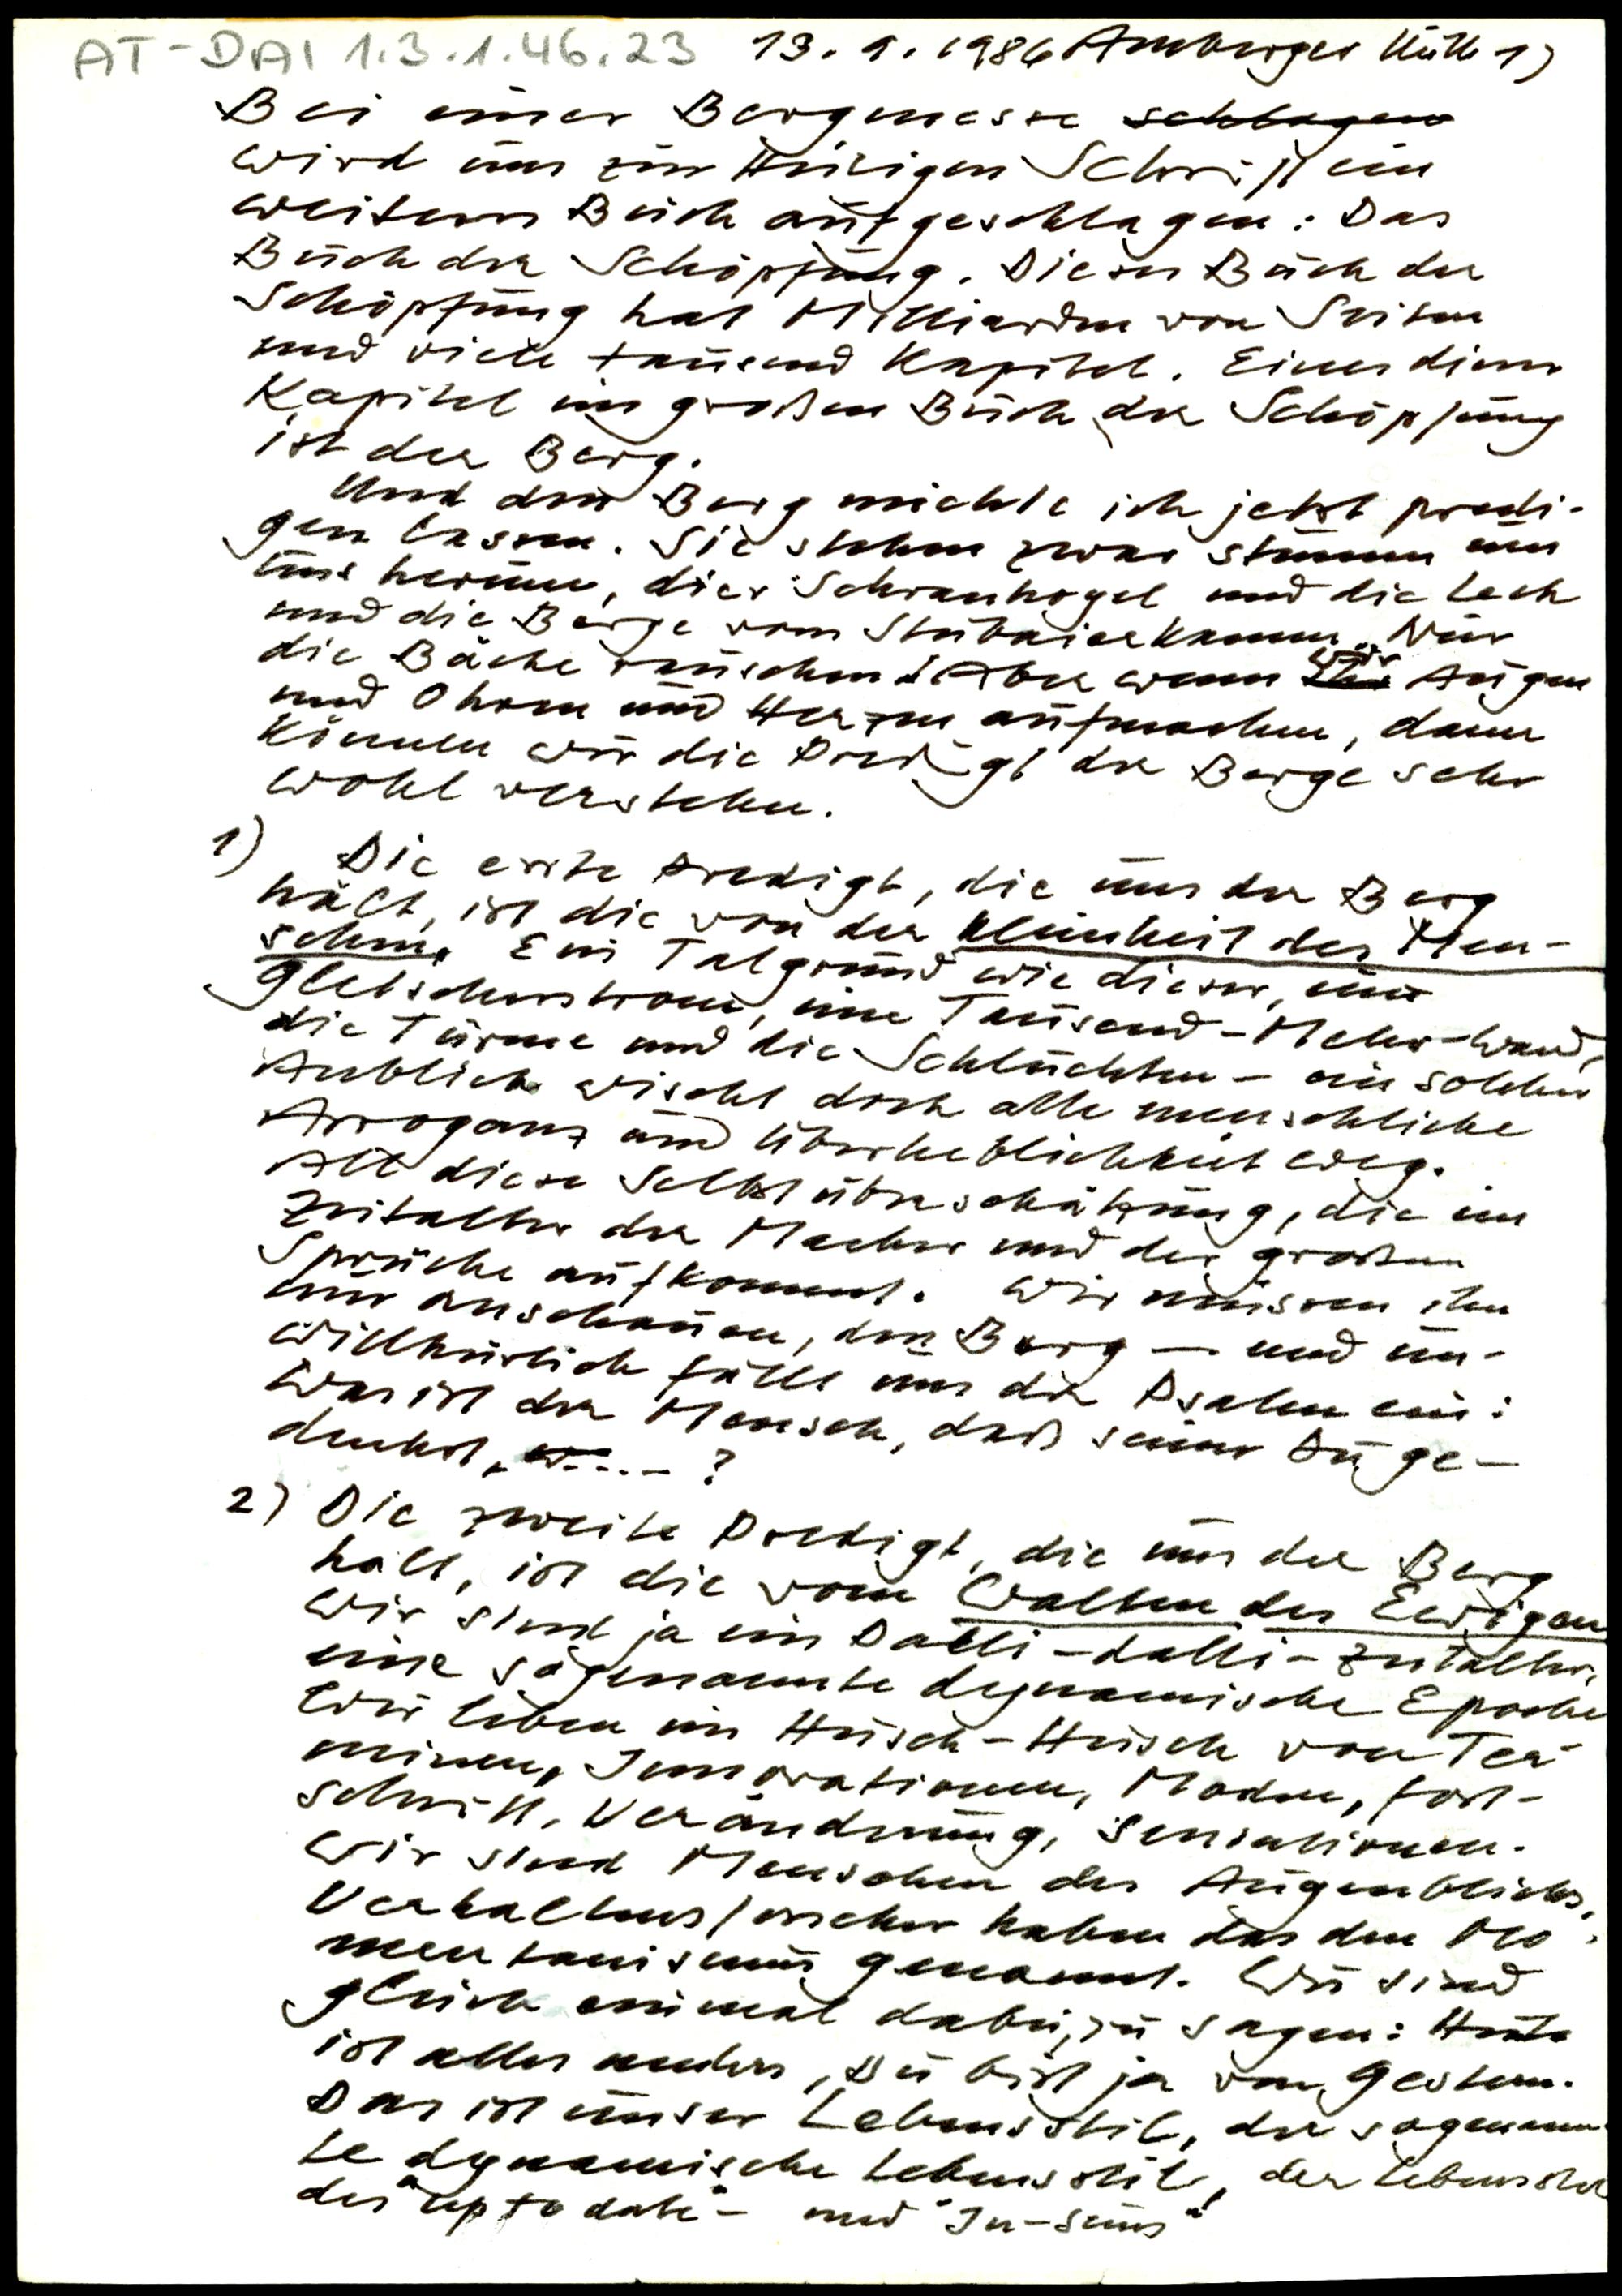 AT-DAI 1.3.1.46.23 13.9.1986 Amberger Hütte 1)
Bei einer Bergmesse schlagen
wird uns zur Heiligen Schrift ein
weiteres Buch aufgeschlagen: Das
Buch der Schöpfung. Dieses Buch der
Schöpfung hat Milliarden von Seiten
und viele tausend Kapitel. Eines dieser
Kapitel im großen Buch der Schöpfung
ist der Berg.
Und den Berg möchte ich jetzt predi-
gen lassen. Sie stehen zwar stumm um
uns herum, dieser Schrankogel und die Lech
und die Berge vom Stubaierkamm. Nur
die Bäche rauschen. Aber wenn wir Augen
und Ohren und Herzen aufmachen, dann
können wir die Predigt der Berge sehr
wohl verstehen.
1) Die erste Predigt, die uns der Berg
hält, ist die von der Kleinheit des Men-
schen. Ein Talgrund wie dieser, ein
Gletscherstrom, eine Tausend-Meter-Wand,
die Türme und die Schluchten - ein solcher
Anblick wischt doch alle menschliche
Arroganz und Überheblichkeit weg.
All diese Selbstüberschätzung, die im
Zeitalter der Macher und der großen
Sprüche aufkommt. Wir müssen ihn
nur anschauen, den Berg - und un-
willkürlich fällt uns der Psalm ein:
Was ist der Mensch, daß seiner Du ge-
denkst, .... ?
2) Die zweite Predigt, die uns der Berg
hält, ist die vom Walten des Ewigen
Wir sind ja ein Dalli-dalli-Zeitalter,
eine sogenannte dynamische Epoche
Wir leben im Husch-Husch von Ter-
minen, Innovationen, Moden, Fort-
schritt, Veränderung, Sensationen.
Wir sind Menschen des Augenblicks,
Verhaltensforscher haben das den Mo-
mentanismus genannt. Wir sind
gleich einmal dabei, zu sagen: Heute
ist alles anders, Du bist ja von Gestern.
Das ist unser Lebensstil, der sogenann-
te dynamische Lebensstil, der Lebensstil
des "up to date"- und "In-seins"!